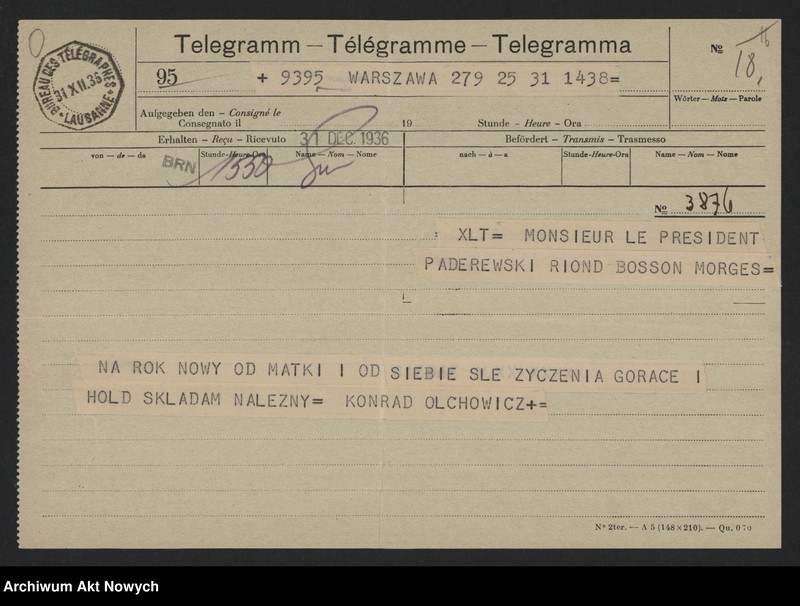 Telegramm — Télégramme — Telegramma
BUREAU DES TÉLÉGRAPHES
31 XII.36
LAUSANNE
95
+ 9395 WARSZAWA 279 25 31 1438=
No
18.
Wörter — Mots — Parole
Aufgegeben den - Consigné le
Consegnato il 19 Stunde - Heure - Ora
Erhalten - Reçu - Ricevuto 31 DEC. 1936 Befördert - Transmis - Trasmesso
von — de — da Stunde-Heure-Ora Name — Nom — Nome nach — à — a Stunde-Heure-Ora Name — Nom — Nome
BRN 1550
No 3876
: XLT= MONSIEUR LE PRESIDENT
PADEREWSKI RIOND BOSSON MORGES=
NA ROK NOWY OD MATKI I OD SIEBIE SLE ZYCZENIA GORACE I
HOLD SKLADAM NALEZNY= KONRAD OLCHOWICZ+=
No 2ter. — A 5 (148×210). — Qu. 070
Archiwum Akt Nowych